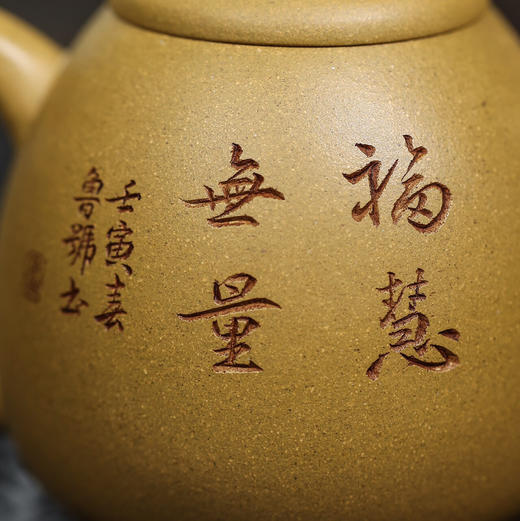 福慧
無量
壬寅春
魯號